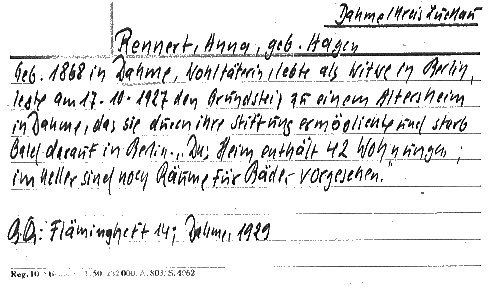 Dahme/Kreis Luckau
Rennert, Anna, geb. Hagen
Geb. 1868 in Dahme, Wohltäterin, lebte als Witwe in Berlin,
legte am 17.10.1927 den Grundstein zu einem Altersheim
in Dahme, das sie durch ihre Stiftung ermöglichte und starb
bald darauf in Berlin. „Das Heim enthält 42 Wohnungen;
im Keller sind noch Räume für Bäder vorgesehen."
Flämingheft 14; Dahme, 1929
Reg. 10 50 2000. A. 803/S. 4062